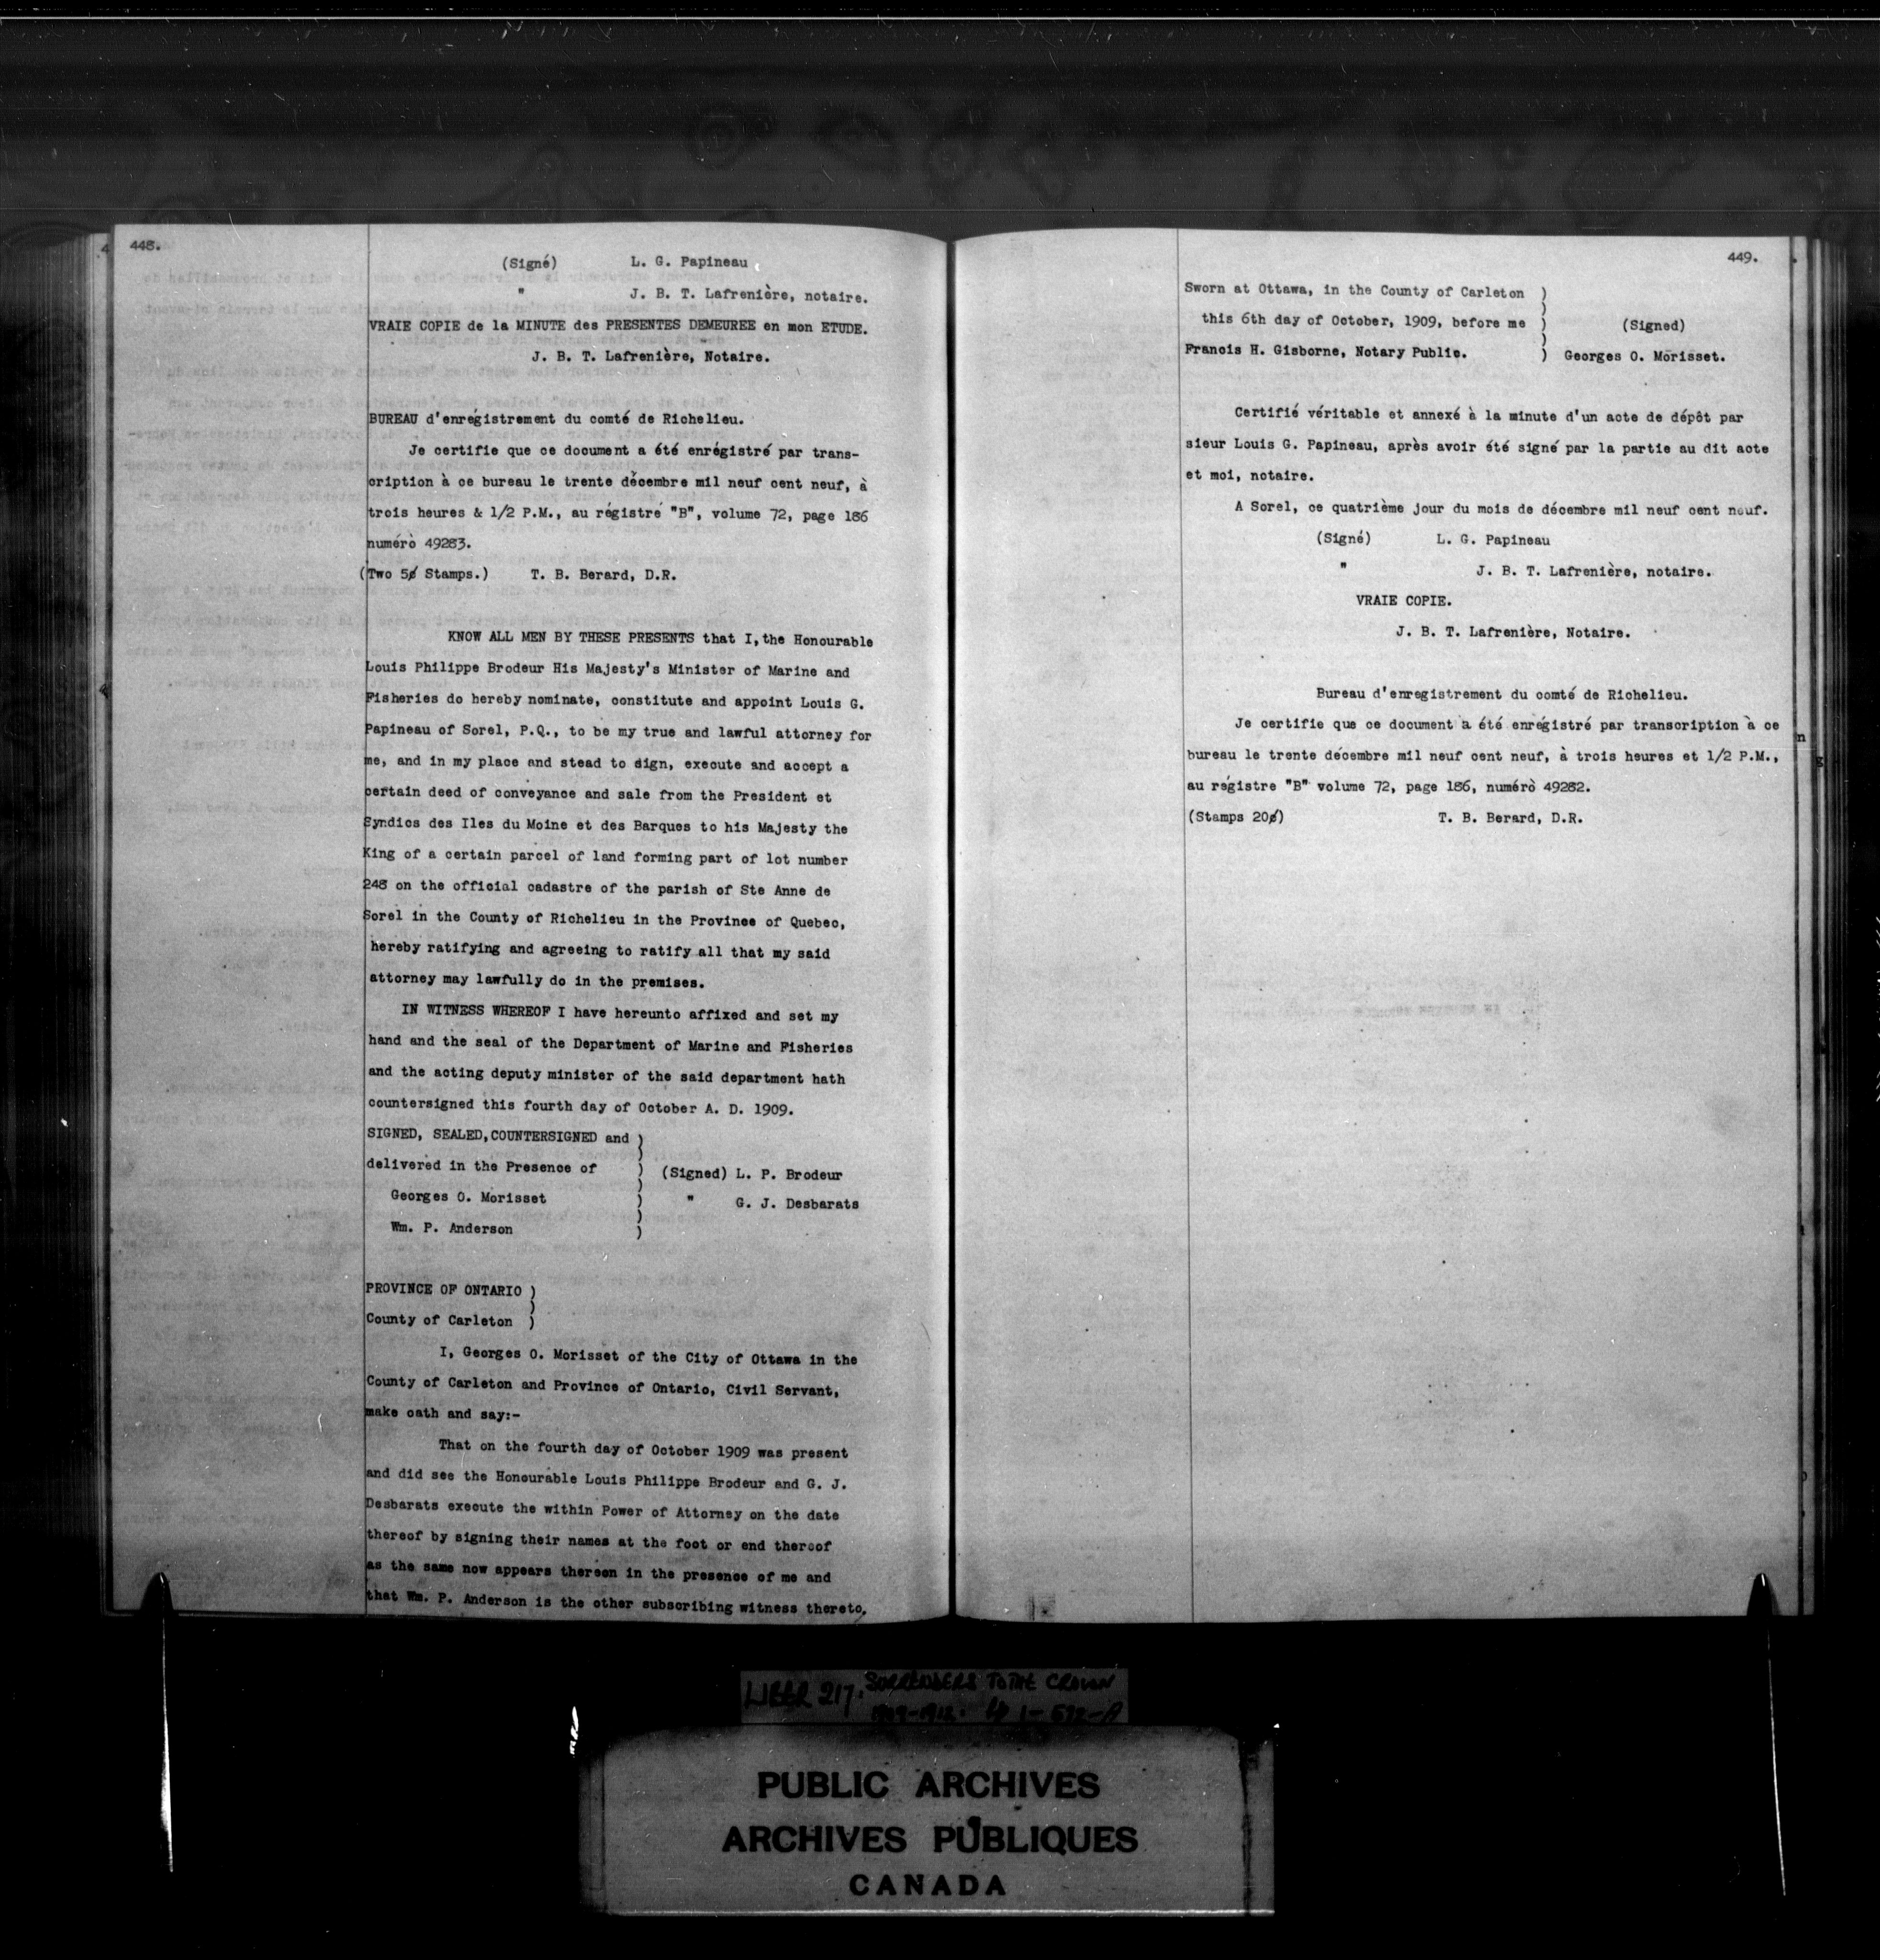 448.
(Signé) L. G. Papineau
" J. B. T. Lafrenière, notaire.
VRAIE COPIE de la MINUTE des PRESENTES DEMEUREE en mon ETUDE.
J. B. T. Lafrenière, Notaire.
BUREAU d'enrégistrement du comté de Richelieu.
Je certifie que ce document a été enrégistré par trans-
cription à ce bureau le trente décembre mil neuf cent neuf, à
trois heures & 1/2 P.M., au régistré "B", volume 72, page 186
numérò 49283.
(Two 5¢ Stamps.) T. B. Berard, D.R.
KNOW ALL MEN BY THESE PRESENTS that I, the Honourable
Louis Philippe Brodeur His Majesty's Minister of Marine and
Fisheries do hereby nominate, constitute and appoint Louis G.
Papineau of Sorel, P.Q., to be my true and lawful attorney for
me, and in my place and stead to sign, execute and accept a
certain deed of conveyance and sale from the President et
Syndics des Iles du Moine et des Barques to his Majesty the
King of a certain parcel of land forming part of lot number
248 on the official cadastre of the parish of Ste Anne de
Sorel in the County of Richelieu in the Province of Quebec,
hereby ratifying and agreeing to ratify all that my said
attorney may lawfully do in the premises.
IN WITNESS WHEREOF I have hereunto affixed and set my
hand and the seal of the Department of Marine and Fisheries
and the acting deputy minister of the said department hath
countersigned this fourth day of October A. D. 1909.
SIGNED, SEALED, COUNTERSIGNED and )
delivered in the Presence of ) (Signed) L. P. Brodeur
Georges O. Morisset ) " G. J. Desbarats
Wm. P. Anderson )
PROVINCE OF ONTARIO )
County of Carleton )
I, Georges O. Morisset of the City of Ottawa in the
County of Carleton and Province of Ontario, Civil Servant,
make oath and say:-
That on the fourth day of October 1909 was present
and did see the Honourable Louis Philippe Brodeur and G. J.
Desbarats execute the within Power of Attorney on the date
thereof by signing their names at the foot or end thereof
as the same now appears thereon in the presence of me and
that Wm. P. Anderson is the other subscribing witness thereto,
449.
Sworn at Ottawa, in the County of Carleton )
this 6th day of October, 1909, before me ) (Signed)
Francis H. Gisborne, Notary Public. ) Georges O. Morisset.
Certifié véritable et annexé à la minute d'un acte de dépôt par
sieur Louis G. Papineau, après avoir été signé par la partie au dit acte
et moi, notaire.
A Sorel, ce quatrième jour du mois de décembre mil neuf cent neuf.
(Signé) L. G. Papineau
" J. B. T. Lafrenière, notaire.
VRAIE COPIE.
J. B. T. Lafrenière, Notaire.
Bureau d'enregistrement du comté de Richelieu.
Je certifie que ce document a été enregistré par transcription à ce
bureau le trente décembre mil neuf cent neuf, à trois heures et 1/2 P.M.,
au régistre "B" volume 72, page 186, numérò 49282.
(Stamps 20¢) T. B. Berard, D.R.
LIBER 217: SURRENDERS TO THE CROWN
1909-1912: 1-592-A
PUBLIC ARCHIVES
ARCHIVES PUBLIQUES
CANADA